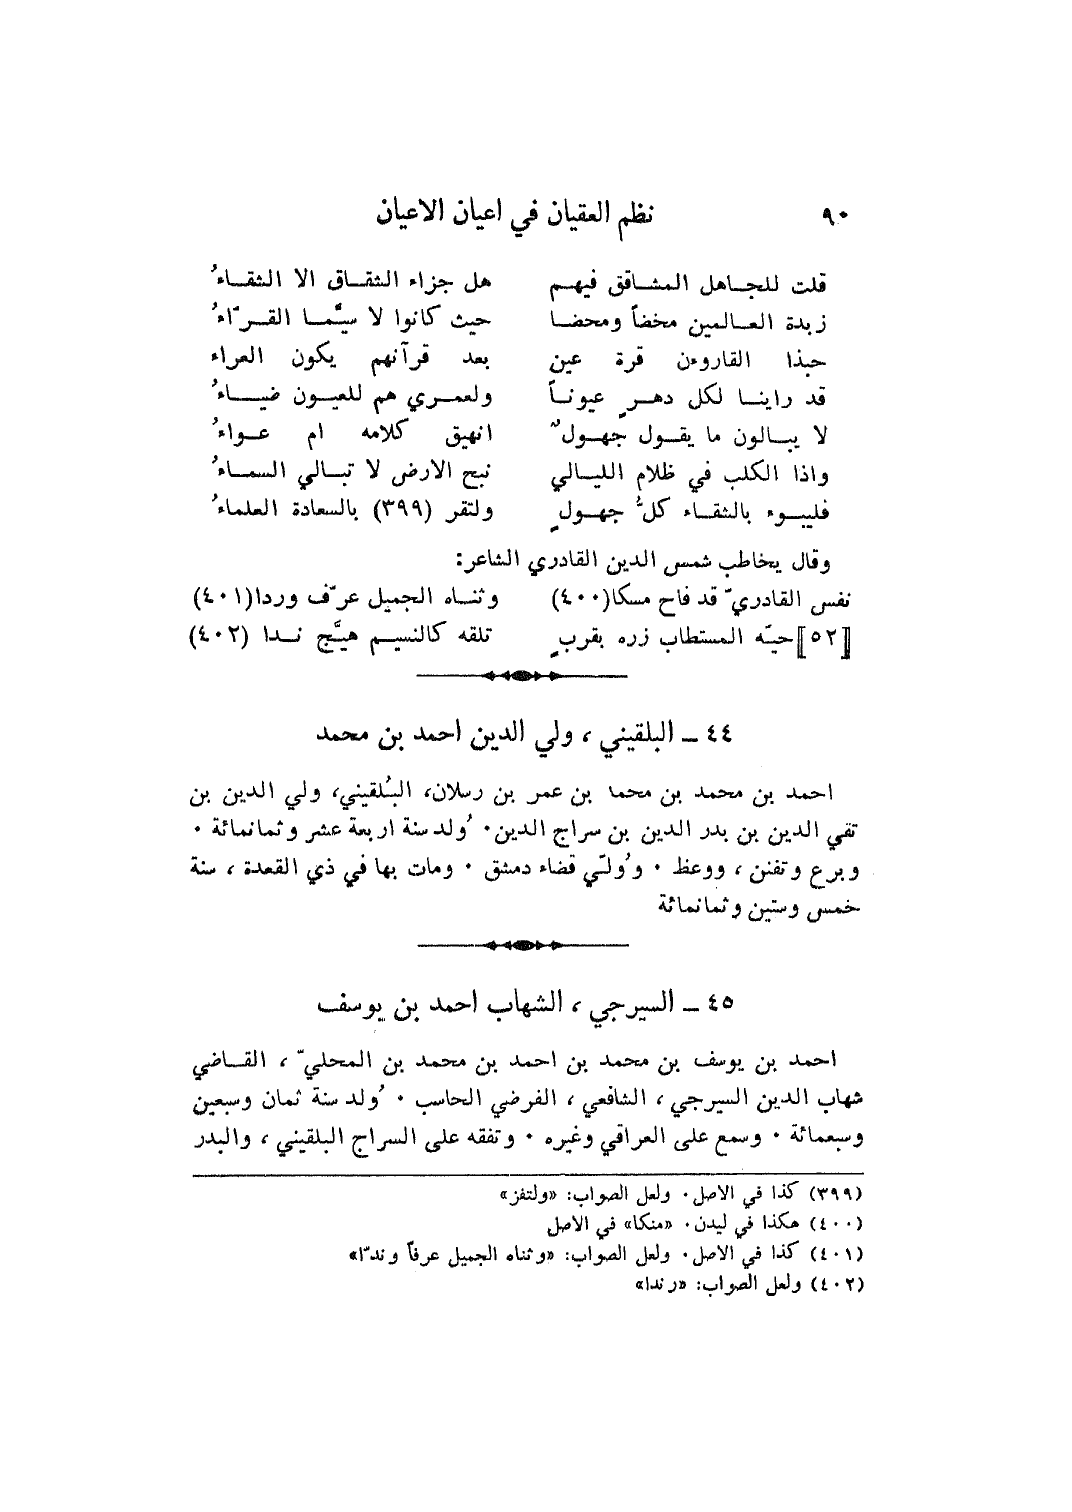 ٩٠ نظم العقيان في اعيان الاعيان
قلت للجاهل المشاقق فيهم هل جزاء الشقاق الا الشقاءُ
زبدة العالمين مخضاً ومحضا حيث كانوا لا سيَّما القرّاءُ
حبذا القاروءن قرة عين بعد قرآنهم يكون العراء
قد راينا لكل دهرٍ عيوناً ولعمري هم للعيون ضياءُ
لا يبالون ما يقول جهولٌ انهيق كلامه ام عواءُ
واذا الكلب في ظلام الليالي نبح الارض لا تبالي السماءُ
فليبوء بالشقاء كلُّ جهولٍ ولتقر (٣٩٩) بالسعادة العلماءُ
وقال يخاطب شمس الدين القادري الشاعر:
نفس القادريّ قد فاح مسكا(٤٠٠) وثناه الجميل عرّف وردا(٤٠١)
[٥٢]حيّه المستطاب زره بقربٍ تلقه كالنسيم هيَّج ندا (٤٠٢)
٤٤ ــ البلقيني ، ولي الدين احمد بن محمد
احمد بن محمد بن محمد بن عمر بن رسلان، البُلقيني، ولي الدين بن
تقي الدين بن بدر الدين بن سراج الدين٠ وُلد سنة اربعة عشر وثمانمائة ٠
وبرع وتفنن ، ووعظ ٠ ووُلّي قضاء دمشق ٠ ومات بها في ذي القعدة ، سنة
خمس وستين وثمانمائة
٤٥ ــ السيرجي ، الشهاب احمد بن يوسف
احمد بن يوسف بن محمد بن احمد بن محمد بن المحليّ ، القاضي
شهاب الدين السيرجي ، الشافعي ، الفرضي الحاسب ٠ وُلد سنة ثمان وسبعين
وسبعمائة ٠ وسمع على العراقي وغيره ٠ وتفقه على السراج البلقيني ، والبدر
(٣٩٩) كذا في الاصل٠ ولعل الصواب: «ولتفز»
(٤٠٠) هكذا في ليدن٠ «منكا» في الاصل
(٤٠١) كذا في الاصل٠ ولعل الصواب: «وثناه الجميل عرفاً وندّا»
(٤٠٢) ولعل الصواب: «رندا»